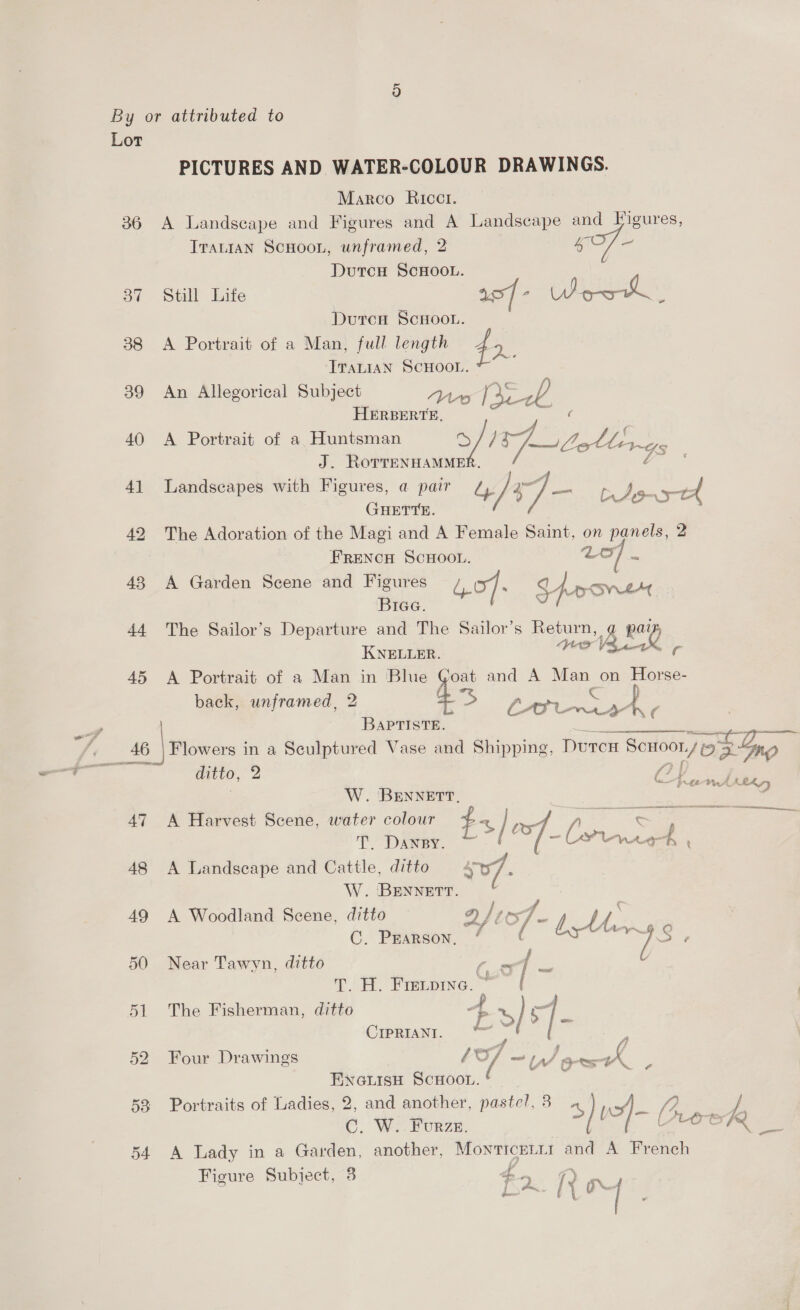 5
By or attributed to
Lot
PICTURES AND WATER-COLOUR DRAWINGS.
Marco Ricci.
36 A Landscape and Figures and A Landscape and Figures,
Italian School, unframed, 2 40/-
Dutch School.
37 Still Life 20/- Worth.
Dutch School.
38 A Portrait of a Man, full length £2.
Italian School.
39 An Allegorical Subject no Bid
Herberte.
40 A Portrait of a Huntsman 3/15/- Collings
J. Rottenhammer.
41 Landscapes with Figures, a pair 4/4/- Worth
Ghette.
42 The Adoration of the Magi and A Female Saint, on panels, 2
French School. 20/-
43 A Garden Scene and Figures 40/. Spooner
Bigg.
44 The Sailor's Departure and The Sailor's Return, a pair
Kneller. no Bid
45 A Portrait of a Man in Blue Coat and A Man on Horse-
back, unframed, 2 £3 Cornish
Baptiste.
46 Flowers in a Sculptured Vase and Shipping, Dutch School, 103 Gns
ditto, 2
W. Bennett.
47 A Harvest Scene, water colour £3/10/- Cornish
T. Danby.
48 A Landscape and Cattle, ditto 40/.
W. Bennett.
49 A Woodland Scene, ditto 2/10/- Collings.
C. Pearson.
50 Near Tawyn, ditto 60/-
T. H. Fielding.
51 The Fisherman, ditto £3/5/-
Cipriani.
52 Four Drawings 10/- Worth.
English School.
53 Portraits of Ladies, 2, and another, pastel, 3 3/10/- Brook
C. W. Furze.
54 A Lady in a Garden, another, Monticelli and A French
Figure Subject, 3 £2. Roy.